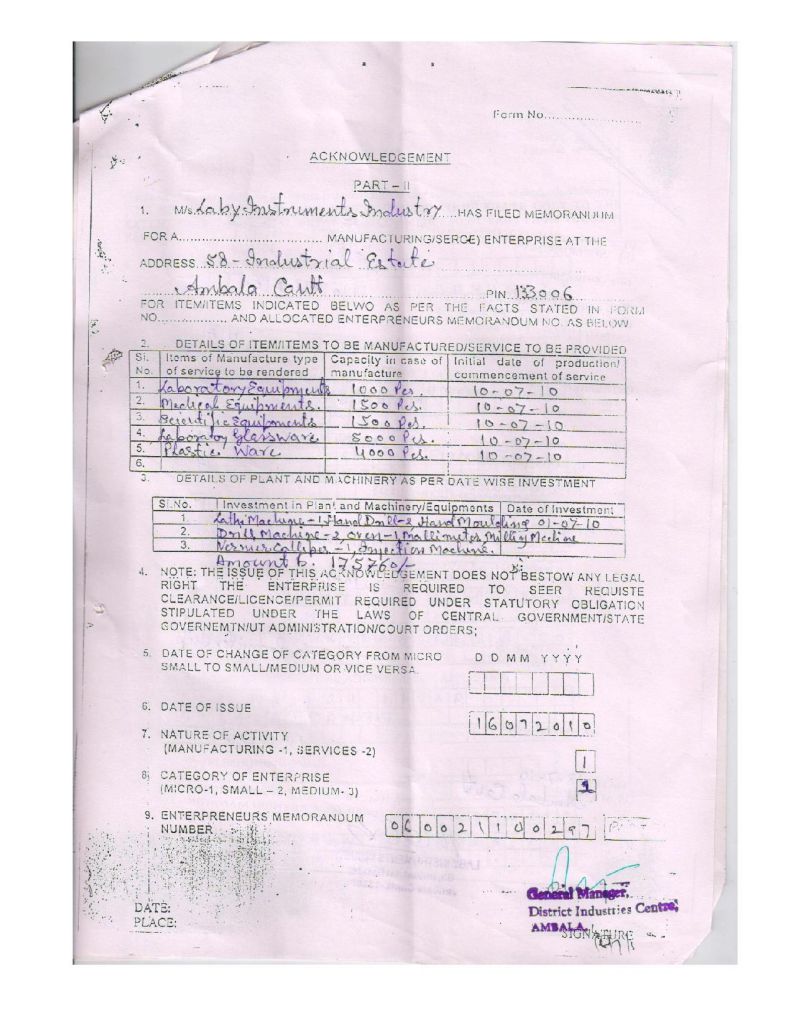 Form No........................
ACKNOWLEDGEMENT
PART – II
1. M/s. Laby Instruments Industry ....HAS FILED MEMORANDUM
FOR A.................................. MANUFACTURING/SERGE) ENTERPRISE AT THE
ADDRESS 58 - Industrial Estate
Ambala Cantt PIN 133006
FOR ITEM/ITEMS INDICATED BELWO AS PER THE FACTS STATED IN FORM
NO.................. AND ALLOCATED ENTERPRENEURS MEMORANDUM NO. AS BELOW
2. DETAILS OF ITEM/ITEMS TO BE MANUFACTURED/SERVICE TO BE PROVIDED
Sl. No. Items of Manufacture type of service to be rendered Capacity in case of manufacture Initial date of production/ commencement of service
1. Laboratory Equipments 1000 Pcs. 10-07-10
2. Medical Equipments. 1500 Pcs. 10-07-10
3. Scientific Equipments 1500 Pcs. 10-07-10
4. Laboratoy Glassware 5000 Pcs. 10-07-10
5. Plastic Ware 4000 Pcs. 10-07-10
6.
3. DETAILS OF PLANT AND MACHINERY AS PER DATE WISE INVESTMENT
Sl.No. Investment in Plant and Machinery/Equipments Date of Investment
1. Lathi Machine-1, Hand Drill-2, Hand Moulding 01-07-10
2. Drill Machine-2 oven-1,
3. -1, Injection Machine.
Amount 175760/-
4. NOTE: THE ISSUE OF THIS ACKNOWLEDGEMENT DOES NOT BESTOW ANY LEGAL
RIGHT THE ENTERPRISE IS REQUIRED TO SEER REQUISTE
CLEARANCE/LICENCE/PERMIT REQUIRED UNDER STATUTORY OBLIGATION
STIPULATED UNDER THE LAWS OF CENTRAL GOVERNMENT/STATE
GOVERNEMTN/UT ADMINISTRATION/COURT ORDERS;
5. DATE OF CHANGE OF CATEGORY FROM MICRO D D M M Y Y Y Y
SMALL TO SMALL/MEDIUM OR VICE VERSA.
6. DATE OF ISSUE 16072010
7. NATURE OF ACTIVITY
(MANUFACTURING -1, SERVICES -2) 1
8) CATEGORY OF ENTERPRISE
(MICRO-1, SMALL – 2, MEDIUM- 3)
9. ENTERPRENEURS MEMORANDUM
NUMBER 060021100297
General Manager,
DATE: District Industries Centre,
PLACE: AMBALA.
SIGNATURE